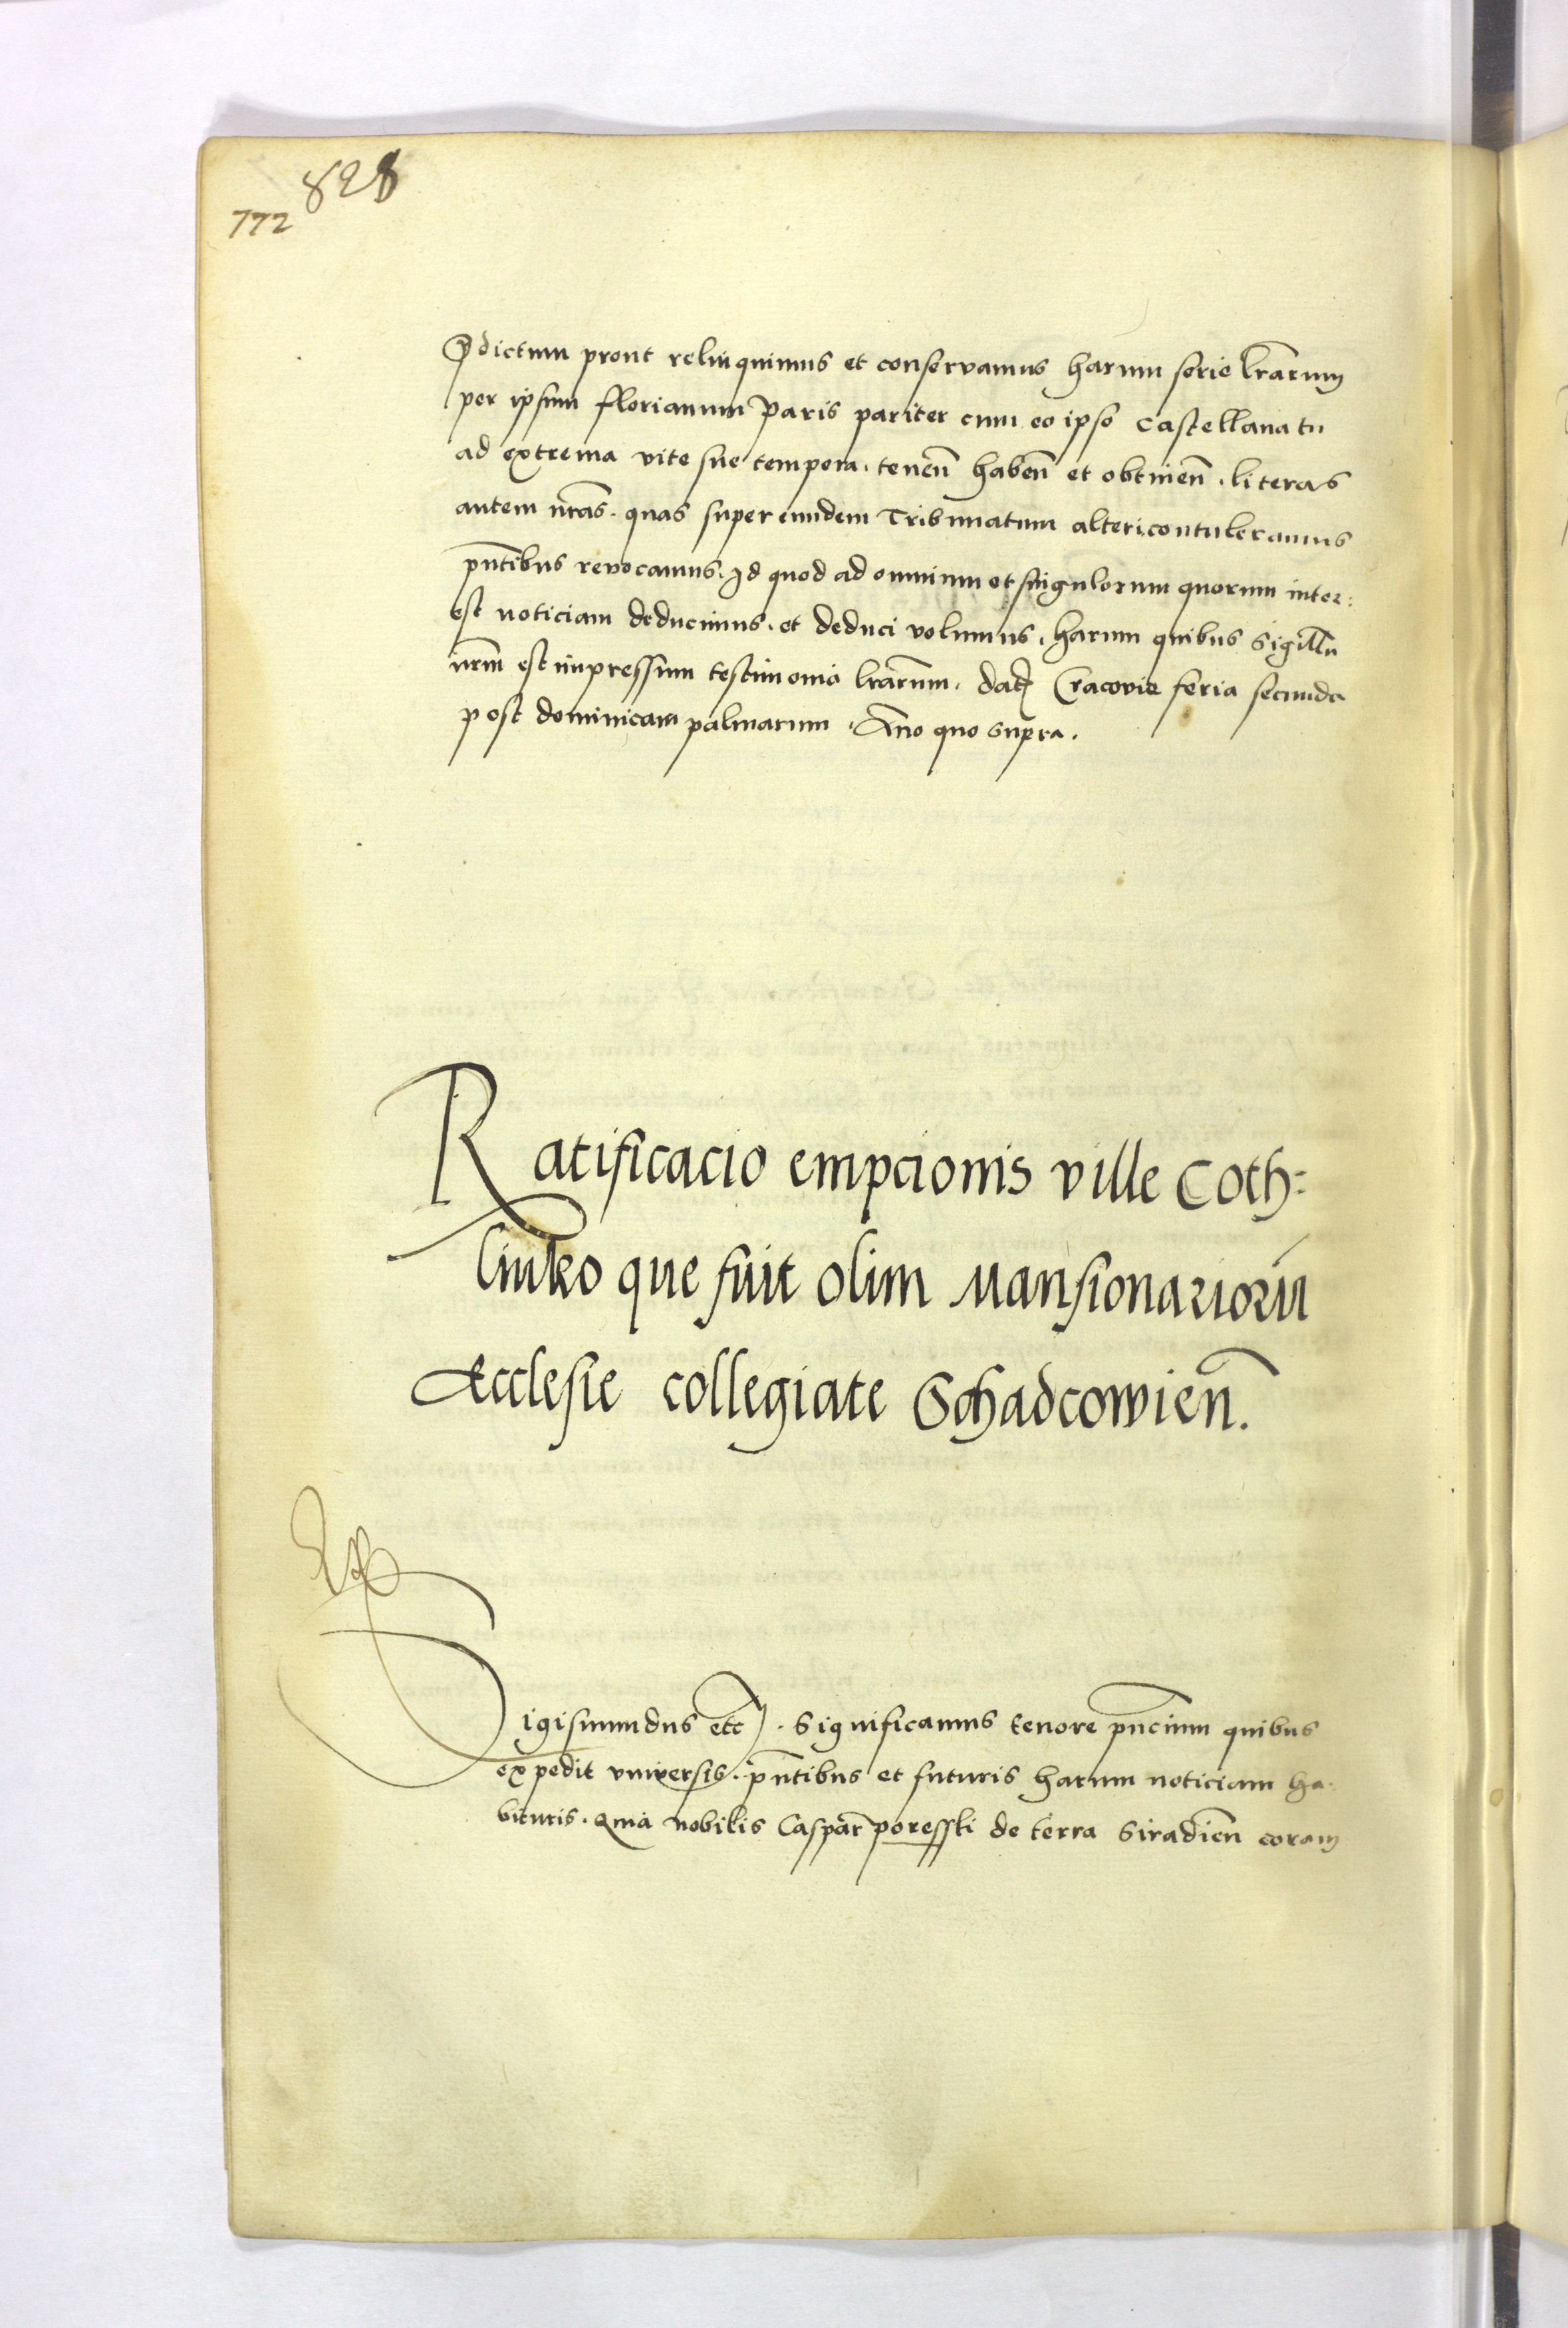 828
772
p̄dictum prout relinquimus et conservamus harum serie l̄rarum
per ipsum florianum paris pariter cum eo ipso Castellanatu
ad extrema vite sue tempora . teneñ habeñ et obtineñ . literas
autem n̄ras . quas super eundem Tribunatum alteri contuleramus
pn̄tibus revocamus . Id quod ad omnium et singulorum quorum inter:
est noticiam deducimus . et deduci volumus . harum quibus Sigillū
nr̄m est impressum testimonio l̄rarum . Datꝫ Cracovie feria secunda
post dominicam palmarum . Ano quo supra .
Ratificacio empcionis ville Coth:
linko que fuit olim Mansionariorū
Ecclesie collegiate Schadcowień.
Sigismundus etc . Significamus tenore pn̄cium quibus
expedit vniversis . pn̄tibus et futuris harum noticiam ha.
bituris . Quia nobilis Caspar poresski de terra Siradień coram